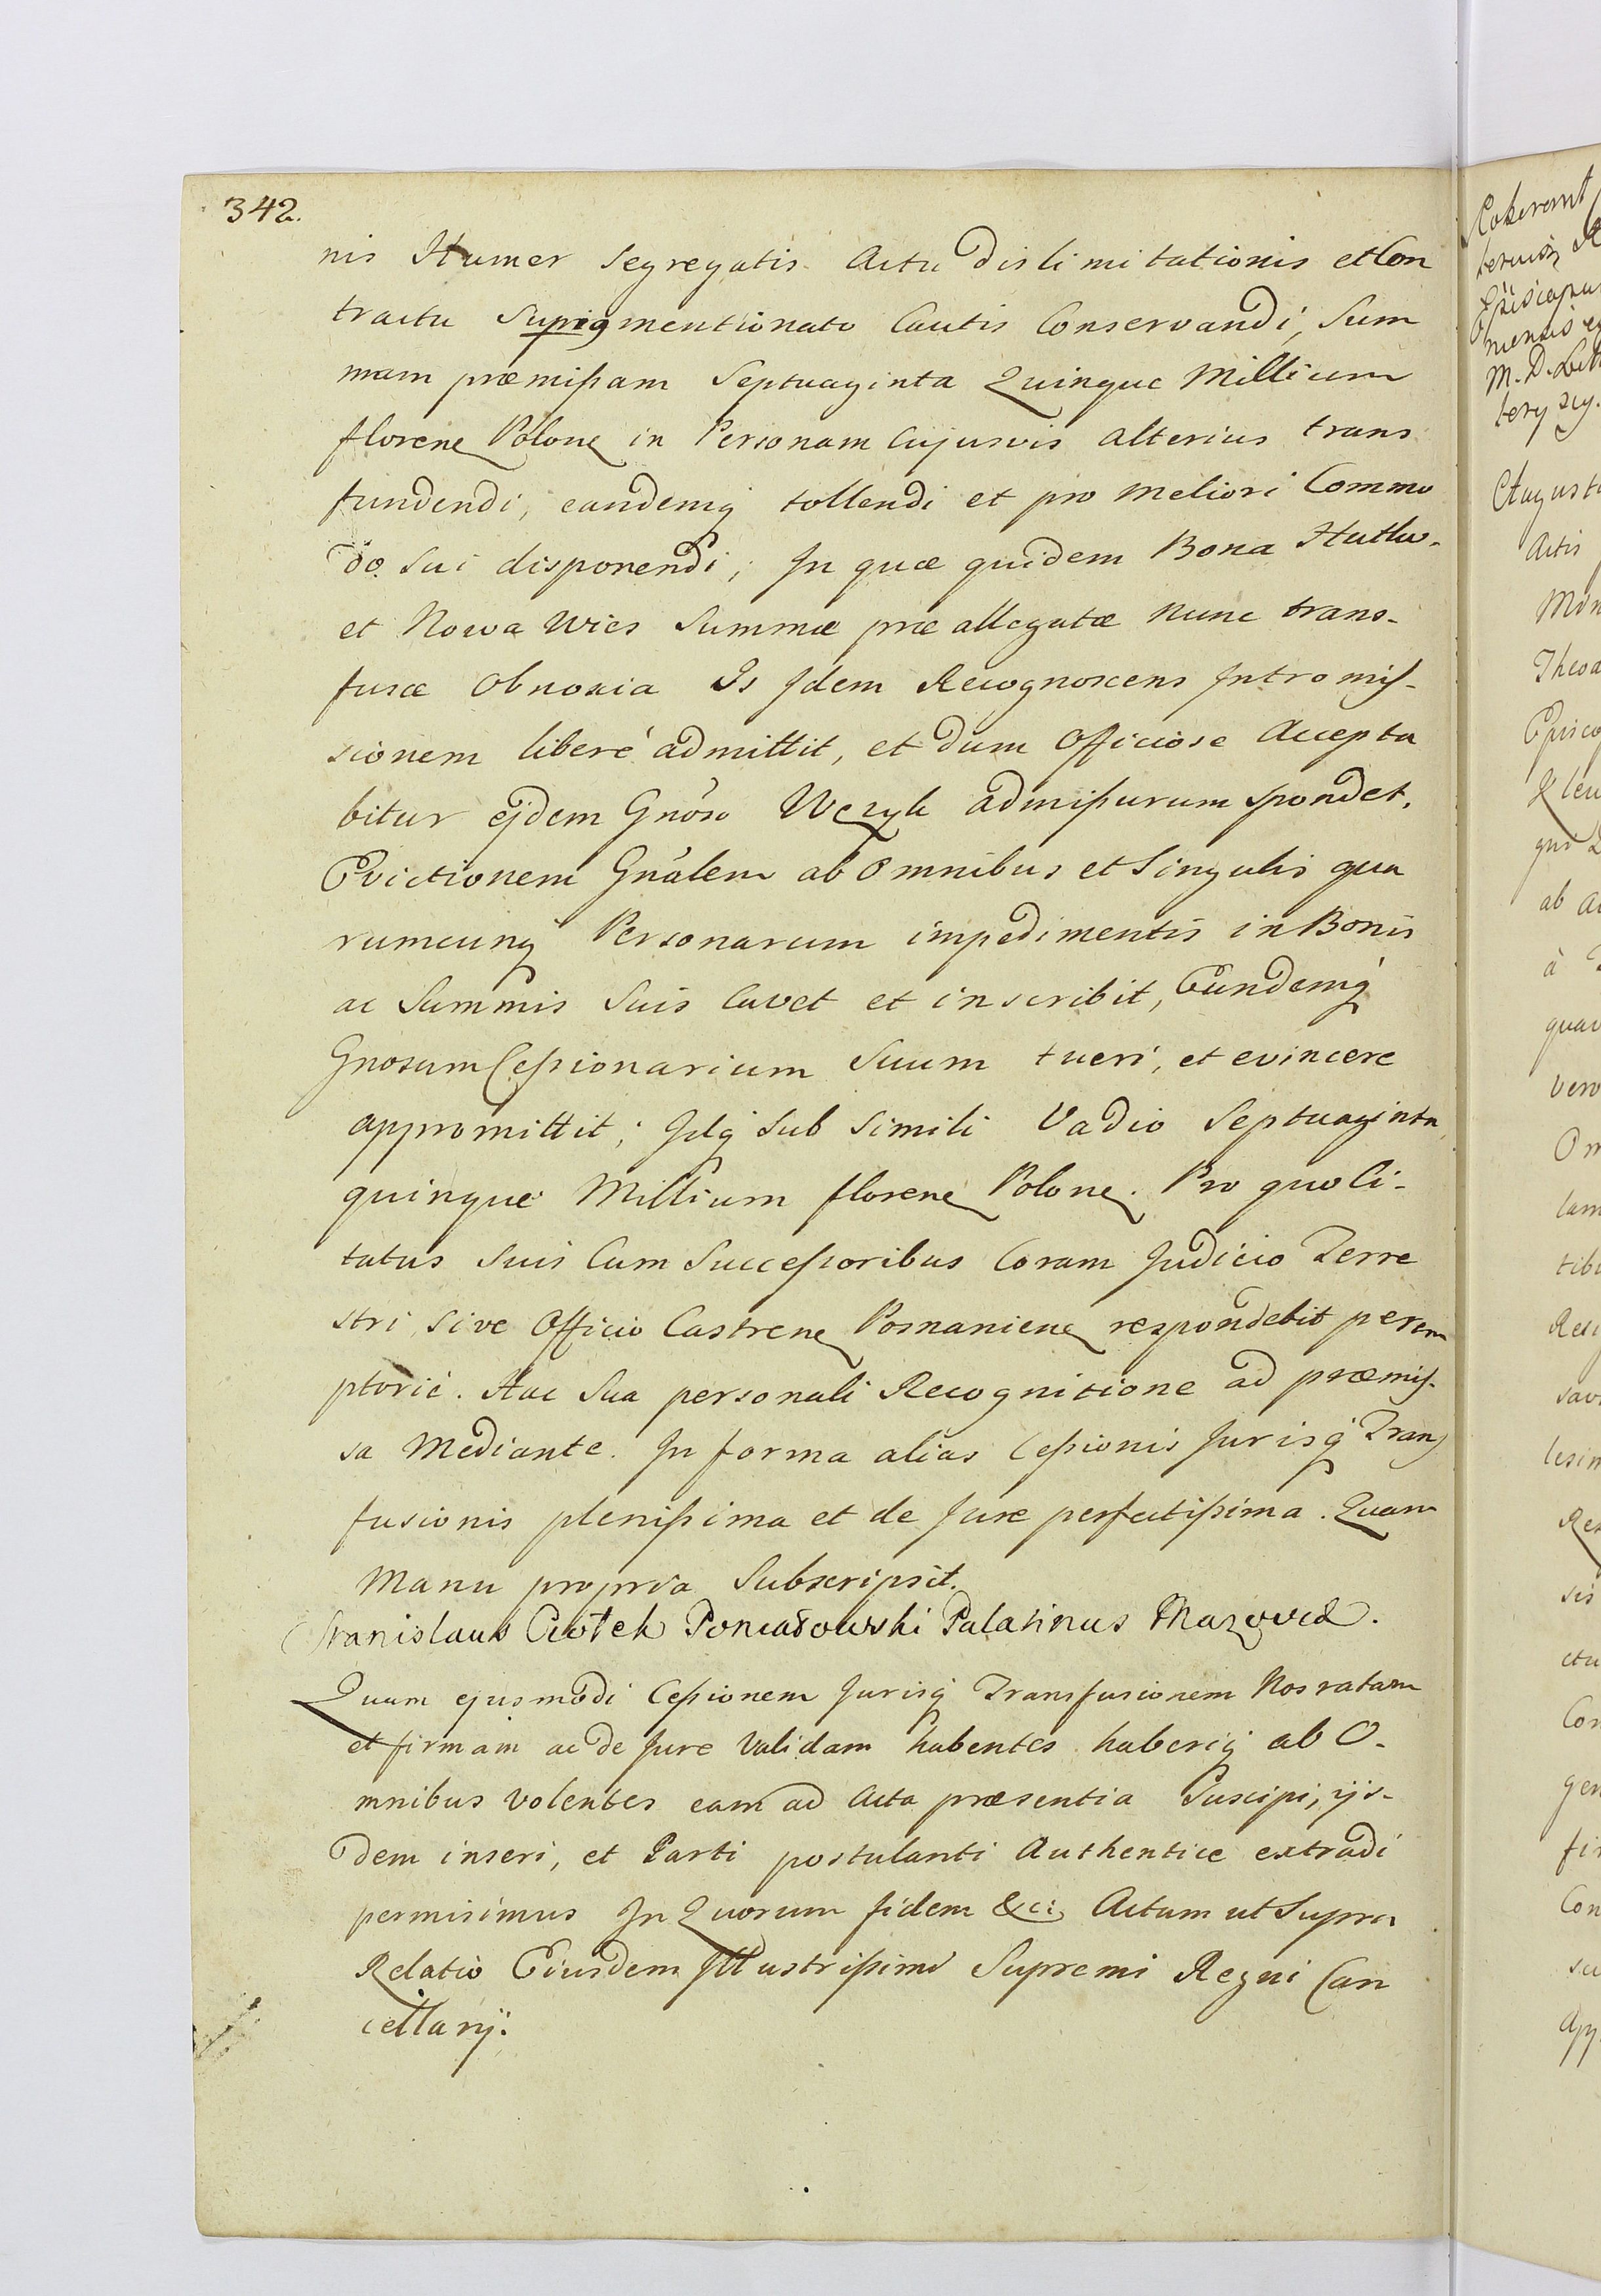 342.
nis Humer Segregatis Actu dislimitationis et Con
tractu supigmentionato Cautis Conservandi, Sum
mam præmissam Septuaginta Quinque Millium
florenę Polonę in Personam Cujusvis alterius trans
fundendi, eandemq tollendi et pro meliori Commo
do sui disponendi; In quæ quidem Bona Hutlw-
et Nowa Wies Summæ præ allegatæ nunc trans-
fusæ obnoxia Is Idem Recognoscens Intromis-
sionem liberé admittit, et dum Officiose Accepta
bitur ejdem Gnoso Węzyk admissurum spondet,
Evictionem Gnâlem ab Omnibus et Singulis qua
rumcunq Personarum impedimentis in Bonis
ac Summis Suis Cavet et inscribit, Eundemq
Gnosum Cessionarium Suum tueri, et evincere
appromittit; Idq sub simili Vadio Septuaginta
quinque Millium florenę Polonę. Pro quo Ci-
tatus Suis Cum Successoribus Coram Judicio Terre
stri, sive Officio Castrenę Posnanienę respondebit perem
ptorié. Hac Sua personali Recognitione ad præmis-
sa Mediante. In forma alias Cessionis Jurisq Trans
fusionis plenissima et de Jure perfectissima. Quam
Manu propria Subscripsit.
Stanislaus Ciołek Poniatowski Palatinus Mazoviæ.
Quam ejusmodi Cessionem Jurisq Transfusionem Nos ratam
et firmam ac de Jure Validam habentes haberiq ab O-
mnibus Volentes eam ad Acta præsentia Suscipi, ijs-
dem inseri, et Parti postulanti Authentice extradi
permisimus In Quorum fidem &c: Actum ut Supra
Relatio Eiusdem Illustrissimi Supremi Regni Can
cellarij.
Episcopu
M. D.
Augusti
Actis
Mon
Theod
Episco
ab
à
quav
vero
Om
lam
tibu
sis
ctu
Con
gen
fir
Con
su
App